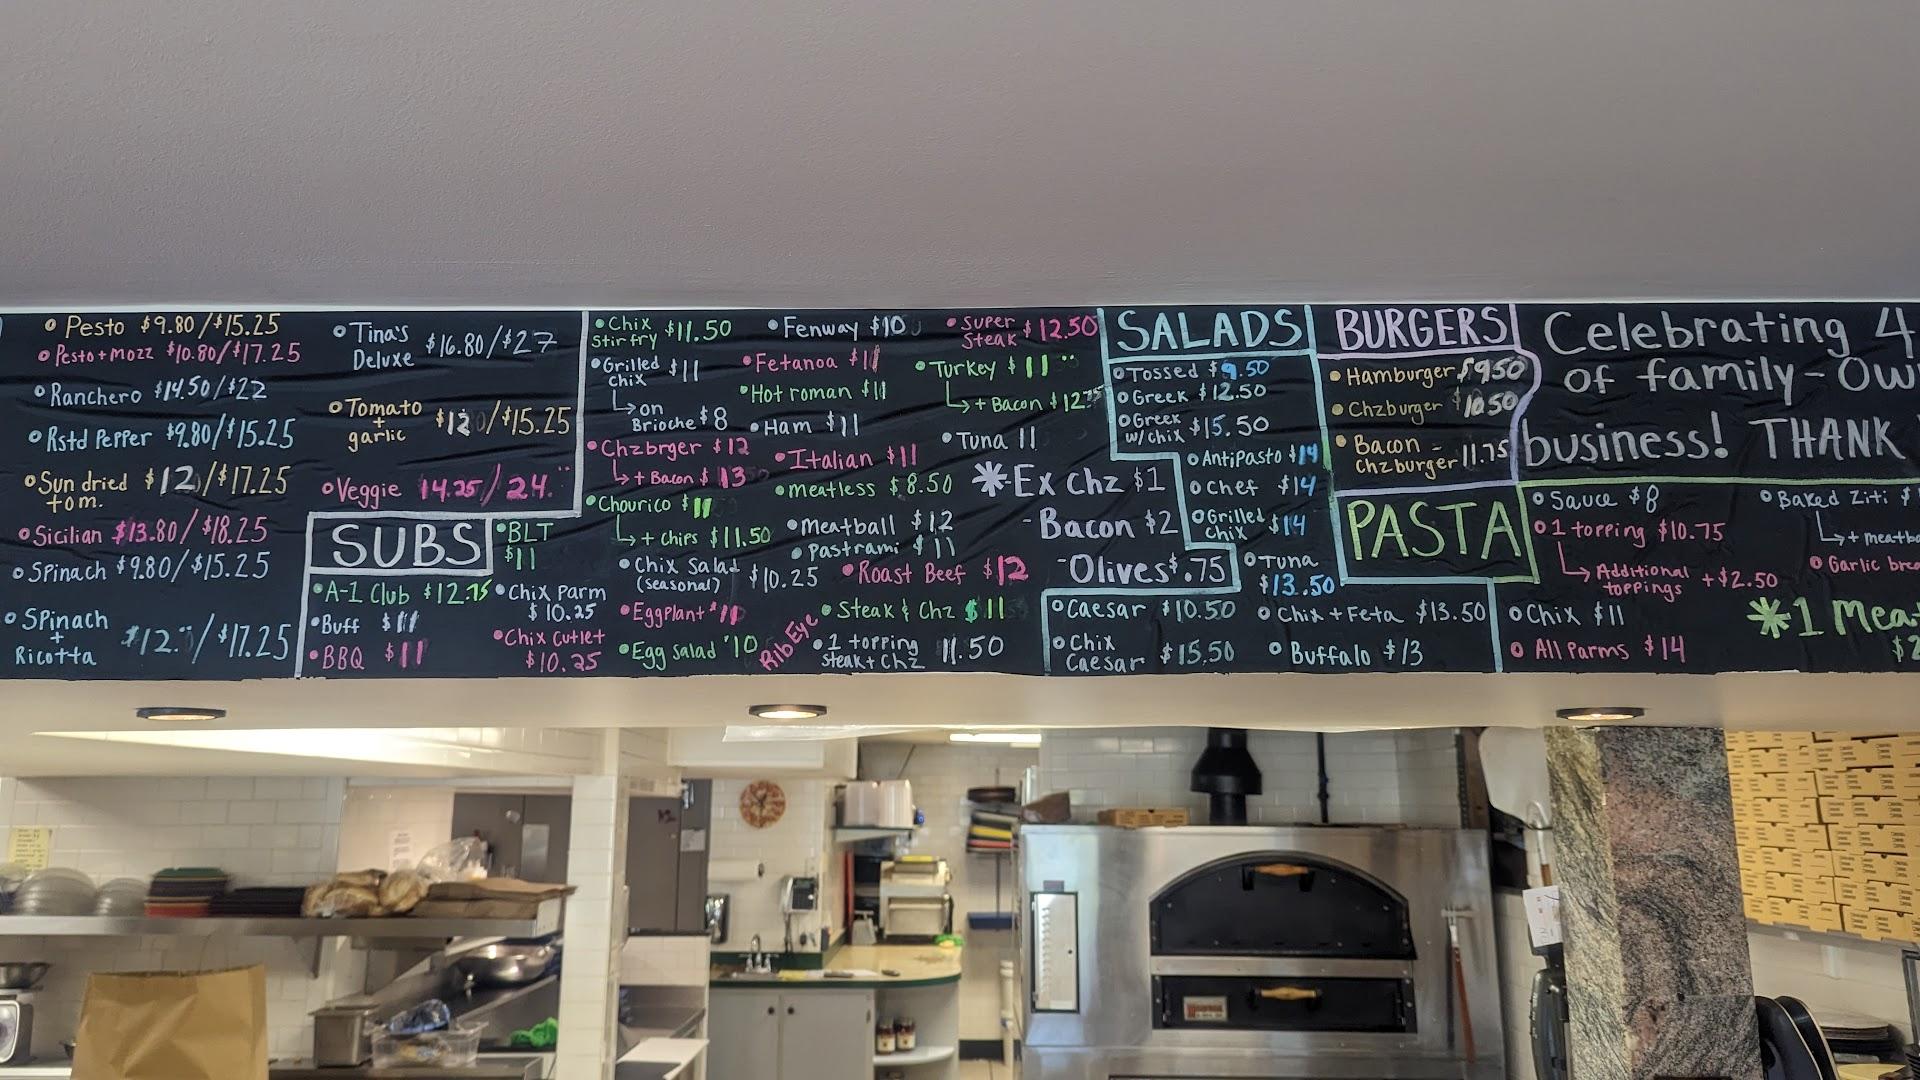 Pesto $9.80/$15.25
Pesto + Mozz $10.80/$17.25
Ranchero $14.50/$22
Rstd Pepper $9.80/$15.25
Sun dried $12/$17.25
tom.
Sicilian $13.80/$18.25
Spinach $9.80/$15.25
Spinach
+
Ricotta $12./$17.25
Tina's
Deluxe $16.80/$27
Tomato
+
garlic $12/$15.25
Veggie 14.25/24.
SUBS
A-1 Club $12.75
Buff $11
BBQ $11
BLT
$11
Chix Parm
$10.25
Chix Cutlet
$10.25
Chix
Stir fry $11.50
Grilled
chix $11
on
Brioche $8
Chzbrger $12
+ Bacon $13
Chourico $11
+ chips $11.50
Chix Salad
(seasonal) $10.25
Eggplant $11
Egg Salad $10
Fenway $10
Fetanoa $11
Hot roman $11
Ham $11
Italian $11
meatless $8.50
meatball $12
Pastrami $11
Roast Beef $12
Steak & Chz $11
RibEye
1 topping
Steak + Chz 11.50
Super
Steak $12.50
Turkey $11
+ Bacon $12.75
Tuna 11
*Ex Chz $1
- Bacon $2
- Olives $.75
SALADS
Tossed $9.50
Greek $12.50
Greek
w/chix $15.50
AntiPasto $14
Chef $14
Grilled
chix $14
Tuna
$13.50
Caesar $10.50
Chix
Caesar $15.50
Chix + Feta $13.50
Buffalo $13
BURGERS
Hamburger $9.50
Chzburger $10.50
Bacon -
Chzburger 11.75
Celebrating 4
of family-Ow
business! THANK
PASTA
Sauce $8
1 topping $10.75
Additional
toppings +$2.50
Chix $11
All Parms $14
Baked Ziti $
+ meatba
Garlic brea
*1 Mea
$2